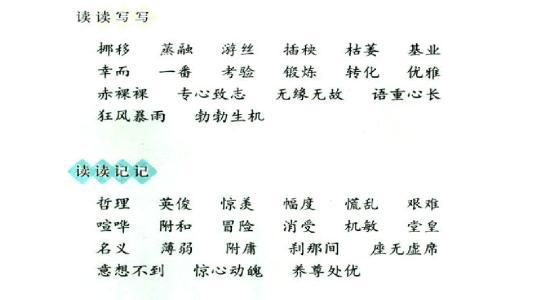 读读写写
挪移 蒸融 游丝 插秧 枯萎 基业
幸而 一番 考验 锻炼 转化 优雅
赤裸裸 专心致志 无缘无故 语重心长
狂风暴雨 勃勃生机
读读记记
哲理 英俊 惊羡 幅度 慌乱 艰难
喧哗 附和 冒险 消受 机敏 堂皇
名义 薄弱 附庸 刹那间 座无虚席
意想不到 惊心动魄 养尊处优